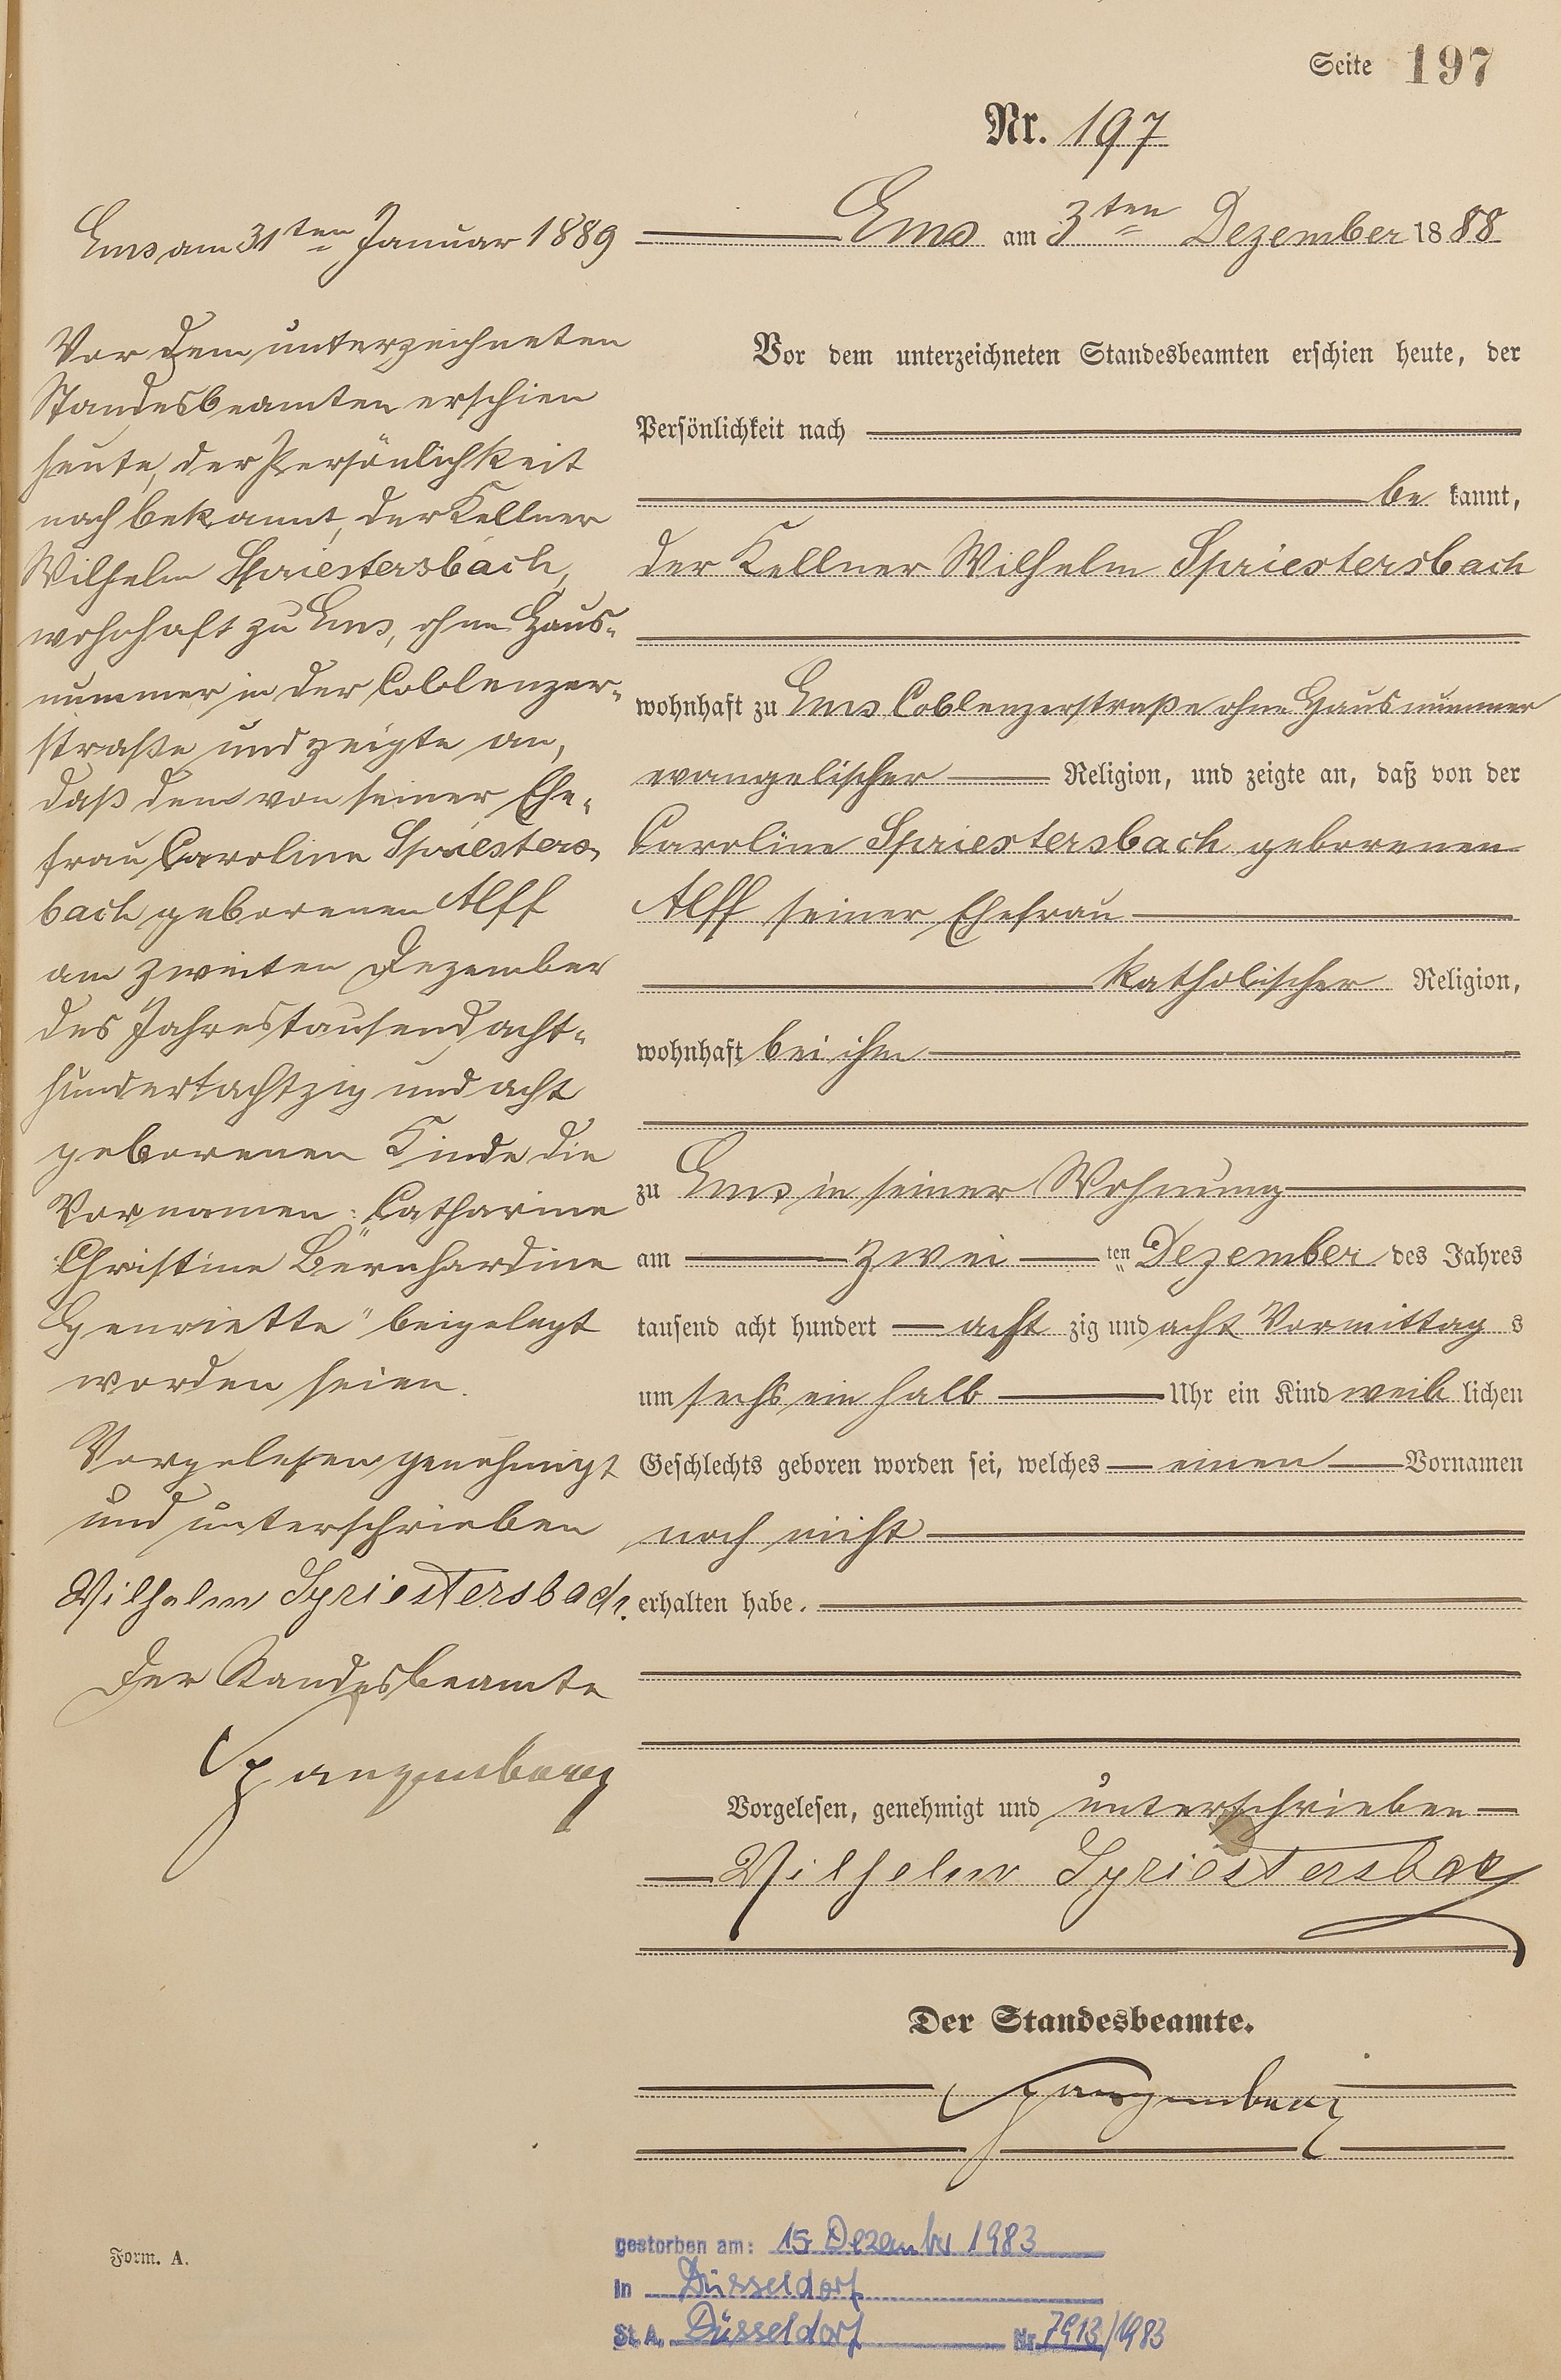 Seite 197
Nr. 197
Ems am 3ten Dezember 1888
Vor dem unterzeichneten Standesbeamten erschien heute, der
Persönlichkeit nach
be kannt,
der Kellner Wilhelm Spriestersbach
wohnhaft zu Ems Coblenzerstraße ohne Hausnummer
evangelischer Religion, und zeigte an, daß von der
Caroline Spriestersbach geborenen
Alff seiner Ehefrau
katholischer Religion,
wohnhaft bei ihm
zu Ems in seiner Wohnung
am zwei ten Dezember des Jahres
tausend acht hundert acht zig und acht Vormittag s
um sechs ein halb Uhr ein Kind weib lichen
Geschlechts geboren worden sei, welches einen Vornamen
noch nicht
erhalten habe.
Vorgelesen, genehmigt und unterschrieben
Wilhelm Spriestersbach
Der Standesbeamte.
Ems am 31ten Januar 1889
Vor dem unterzeichneten
Standesbeamten erschien
heute, der Persönlichkeit
nach bekannt, der Kellner
Wilhelm Spriestersbach,
wohnhaft zu Ems, ohne Haus-
nummer in der Coblenzer-
straße und zeigte an,
daß dem von seiner Ehe-
frau Caroline Spriesters-
bach geborenen Alff
am zweiten Dezember
des Jahres tausend acht-
hundert achtzig und acht
geborenen Kinde die
Vornamen: Catharine
Christine Bernhardine
Henriette" beigelegt
worden seien.
Vorgelesen genehmigt
und unterschrieben
Wilhelm Spriestersbach.
Der Standesbeamte
Form. A.
gestorben am: 15. Dezember 1983
in Düsseldorf
St.A. Düsseldorf Nr. 7913/1983